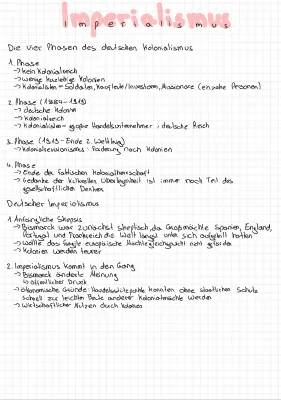 Imperialismus
Imperialismus
Die vier Phasen des deutschen Kolonialismus
1. Phase
→ kein Kolonialreich
→ wenige kurzlebige Kolonien
→ Kolonialisten = Soldaten, Kaufleute/Investoren, Missionare (einzelne Personen)
2. Phase (1884-1919)
→ deutsche Kolonien
→ Kolonialreich
→ Kolonialisten = große Handelsunternehmer; deutsche Reich
3. Phase (1919-Ende 2. Weltkrieg)
→ Kolonialrevisionismus: Forderung nach Kolonien
4. Phase
→ Ende der faktischen Kolonialherrschaft
→ Gedanke der kulturellen Überlegenheit ist immer noch Teil des
gesellschaftlichen Denkens
Deutscher Imperialismus
1. Anfängliche Skepsis
→ Bismarck war zunächst skeptisch, da Großmächte Spanien, England,
Portugal und Frankreich die Welt längst unter sich aufgeteilt hatten
→ wollte das fragile europäische Mächtegleichgewicht nicht gefährden
→ Kolonien wurden teurer
2. Imperialismus kommt in den Gang
→ Bismarck änderte Meinung
↳ öffentlicher Druck
→ ökonomische Gründe: Handelsstützpunkte konnten ohne staatlichen Schutz
schnell zur leichten Beute anderer Kolonialmächte werden
→ wirtschaftlicher Nutzen durch Kolonien